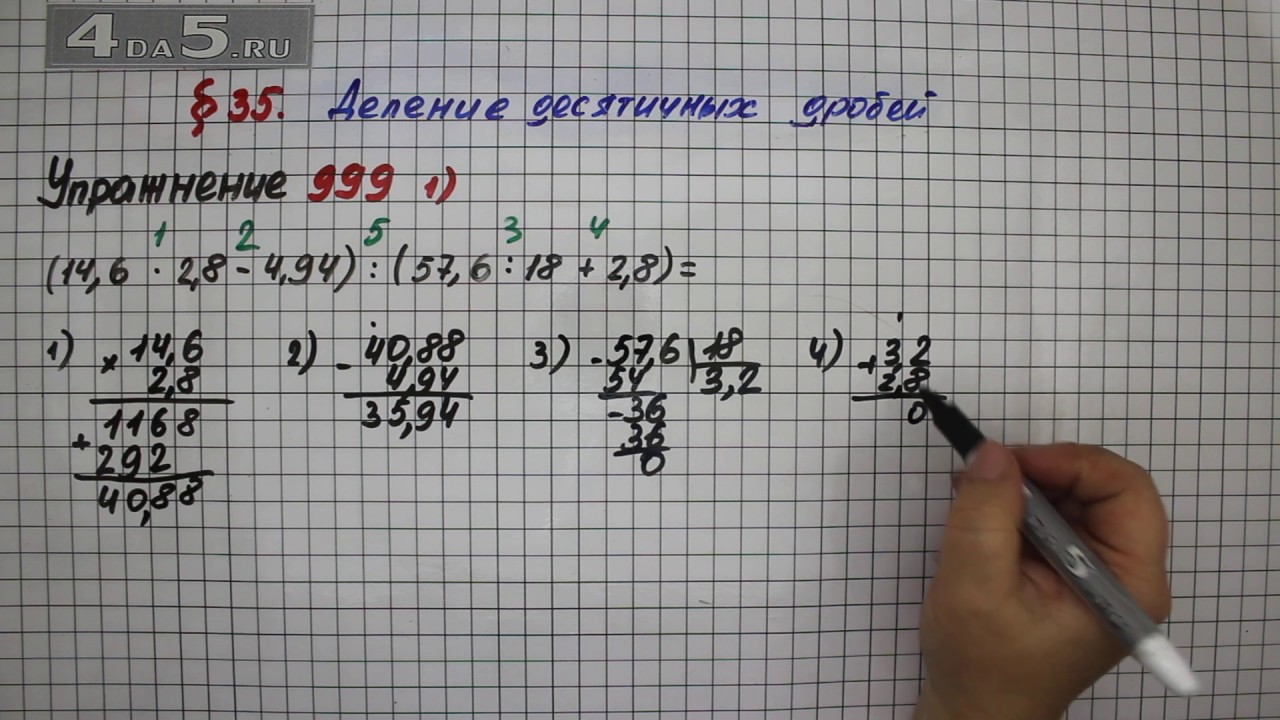 4DA5.RU
§ 35. Деление десятичных дробей
Упражнение 999 1)
1 2 5 3 4
(14,6 · 2,8 - 4,94) : (57,6 : 18 + 2,8) =
1) × 14,6
2,8
1168
+ 292
40,88
2) - 40,88
4,94
35,94
3) - 57,6 | 18
54 3,2
- 36
36
0
4) + 3,2
2,8
0